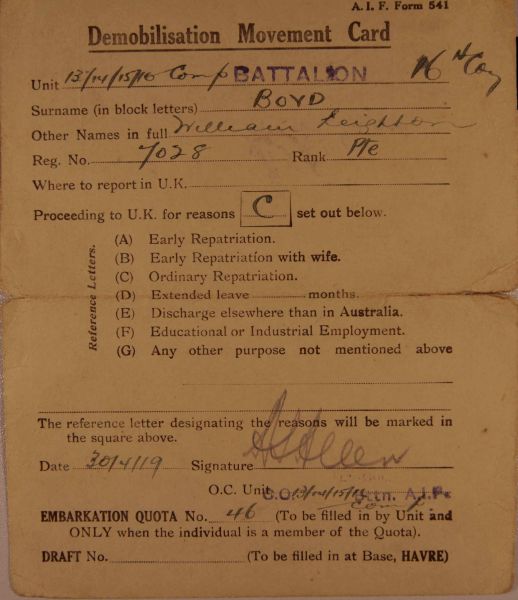 A. I. F. Form 541
Demobilisation Movement Card
Unit 13/14/15/16 Comp BATTALION 16th Coy
Surname (in block letters) BOYD
Other Names in full William Leighton
Reg. No. 7028 Rank Pte
Where to report in U.K.
Proceeding to U.K. for reasons C set out below.
Reference Letters.
(A) Early Repatriation.
(B) Early Repatriation with wife.
(C) Ordinary Repatriation.
(D) Extended leave months.
(E) Discharge elsewhere than in Australia.
(F) Educational or Industrial Employment.
(G) Any other purpose not mentioned above
The reference letter designating the reasons will be marked in
the square above.
Date 30/4/19 Signature
O.C. Unit C.O. 13/14/15/16 Bttn. A.I.F.
Comp.
EMBARKATION QUOTA No. 46 (To be filled in by Unit and
ONLY when the individual is a member of the Quota).
DRAFT No. (To be filled in at Base, HAVRE)